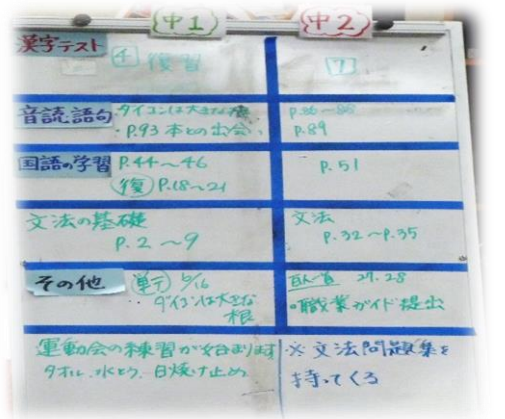 中1
中2
漢字テスト
④ 復習
7
音読語句
ダイコンは大きな根
・P.93 本との出会い
P.86～88
P.89
国語の学習
P.44～46
復 P.18～21
P.51
文法の基礎
P.2～9
文法
P.32～P.35
その他
単テ 5/16
ダイコンは大きな
根
百人一首 27.28
・職業ガイド提出
運動会の練習が始まります
タオル、水とう、日焼け止め
※文法問題集を
持ってくる